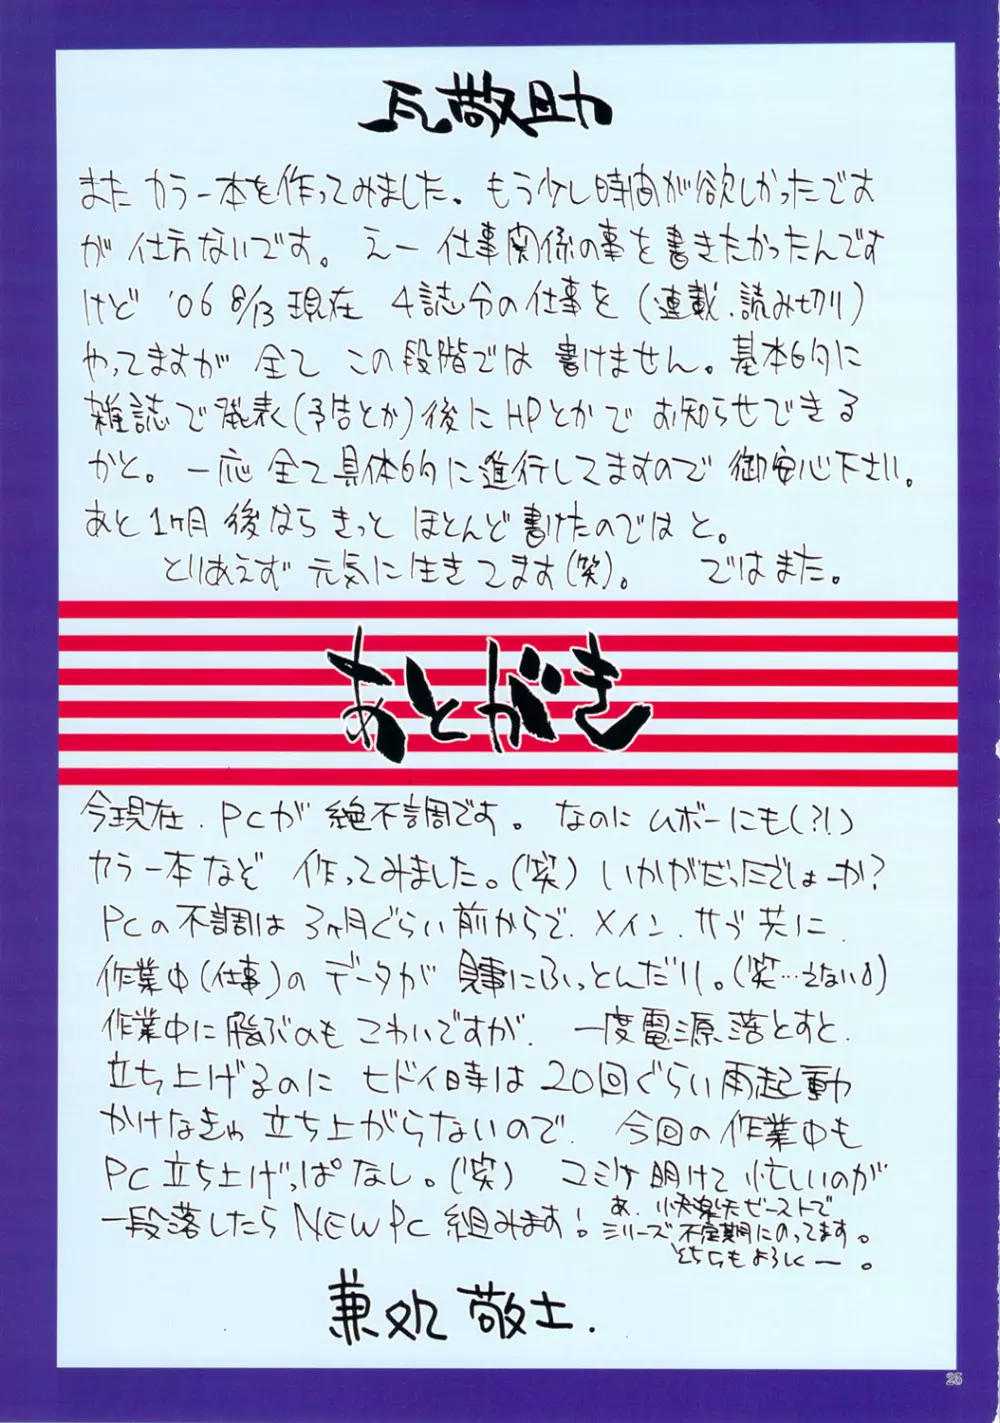 瓦敬助
また カラー本を作ってみました。もう少し時間が欲しかったです
が 仕方ないです。えー 仕事関係の事を書きたかったんです
けど '06 8/13 現在 4誌分の仕事を(連載、読み切り)
やってますが 全て この段階では 書けません。基本的に
雑誌で発表(予告とか)後に HPとかで お知らせできる
かと。一応 全て具体的に進行してますので 御安心下さい。
あと 1ヶ月 後なら きっと ほとんど書けたのでは と。
とりあえず 元気に生きてます(笑)。 ではまた。
あとがき
今現在、PCが 絶不調です。なのに ムボーにも(?!)
カラー本など 作ってみました。(笑) いかがだったでしょーか?
PCの不調は 3ヶ月ぐらい前からで、メイン、サブ共に、
作業中(仕事)の データが 見事にふっとんだり。(笑…えない)
作業中に 飛ぶのも こわいですが、 一度電源落とすと、
立ち上げるのに ヒドイ時は 20回ぐらい再起動
かけなきゃ 立ち上がらないので、 今回の作業中も
PC立ち上げっぱなし。(笑) コミケ明けて 忙しいのが
一段落したら NEW PC 組みます!
あ、快楽天ビーストで
シリーズ 不定期にのってます。
そちらもよろしくー。
兼処 敬士.
25